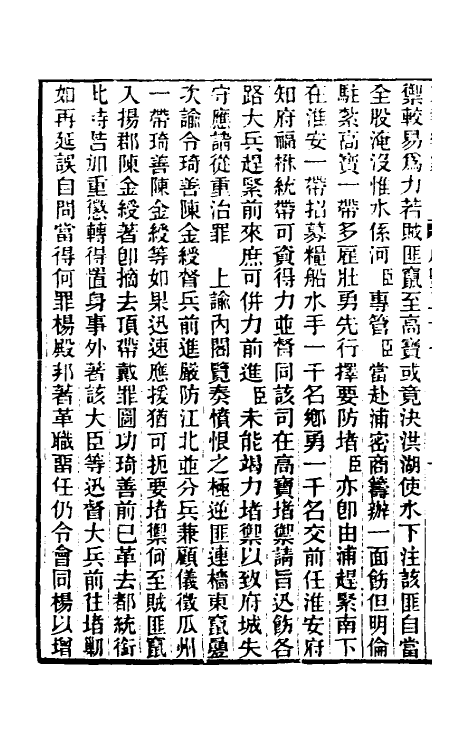 禦較易爲力若賊匪竄至高寶或竟決洪湖使水下注該匪自當
全股淹沒惟水係河臣專管臣當赴浦密商籌辦一面飭但明倫
駐紮高寶一帶多雇壯勇先行擇要防堵臣亦卽由浦趕緊南下
在淮安一帶招募糧船水手一千名鄉勇一千名交前任淮安府
知府福楙統帶可資得力並督同該司在高寶堵禦請旨迅飭各
路大兵趕緊前來庶可併力前進臣未能竭力堵禦以致府城失
守應請從重治罪　上諭內閣覽奏憤恨之極逆匪連檣東竄疊
次諭令琦善陳金綬督兵前進嚴防江北並分兵兼顧儀徵瓜州
一帶琦善陳金綬等如果迅速應援猶可扼要堵禦何至賊匪竄
入揚郡陳金綬著卽摘去頂帶戴罪圖功琦善前已革去都統銜
此時若加重懲轉得置身事外著該大臣等迅督大兵前往堵勦
如再延誤自問當得何罪楊殿邦著革職畱任仍令會同楊以增